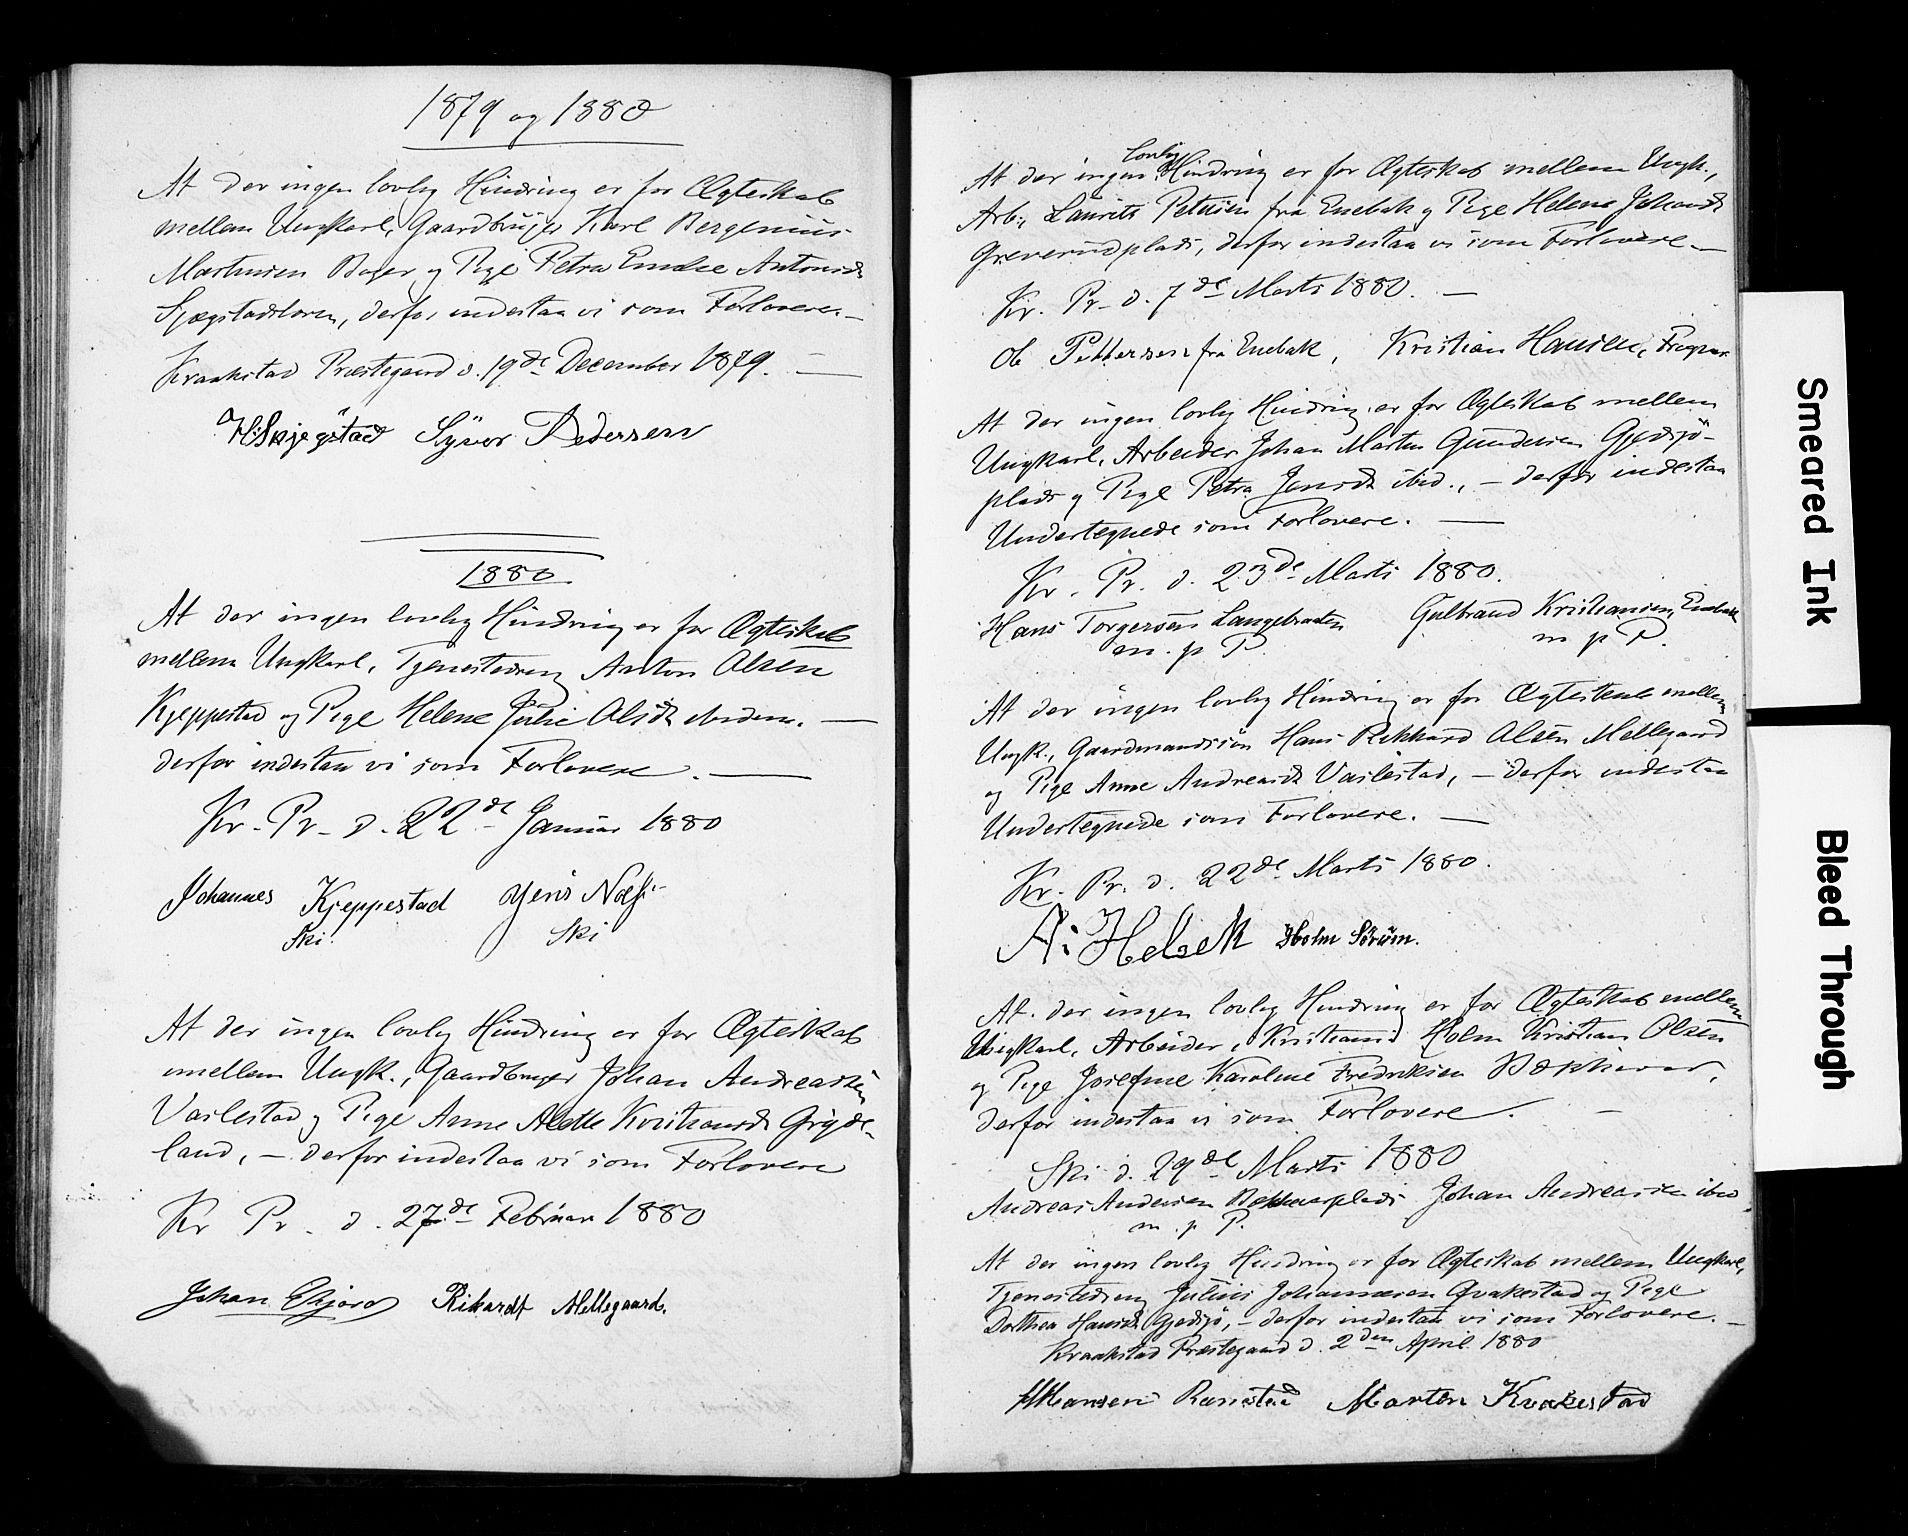 1879 og 1880
At der ingen lovlig Hindring er for Ægteskab
mellem Ungkarl, Gaardbruger Karl Bergenius
Martinsen Boger og Pige Petra Emilie Antonsdt
Sjægstad, derfor indestaa vi som Forlovere.—
Kraakstad Præstegaard d. 19de December 1879. —
H. Skjegstad Syver Pedersen
1880
At der ingen lovlig Hindring er for Ægteskab
mellem Ungkarl, Tjenestedreng Anton Olsen
Kjeppestad og Pige Helene Julie Olsdt ibidem. —
derfor indestaa vi som Forlovere. —
Kr. Pr. d. 22de Januar 1880
Johannes Kjeppestad Jens Næss
Ski. Ski
At der ingen lovlig Hindring er for Ægteskab
mellem Ungk., Gaardbruger Johan Andreassen
Vaslestad og Pige Anne Alette Kristiansdt Gryde-
land, — derfor indestaa vi som Forlovere
Kr Pr. d. 27de Februar 1880
Johan Rikardt Mellegaard.
lovlig
At der ingen Hindring er for Ægteskab mellem Ungk.,
Arb., Laurits Petersen fra Enebak og Pige Helene Johansdt
Greverudplads, derfor indestaa vi som Forlovere —
Kr. Pr. d. 7de Marts 1880. —
Ole Pettersen fra Enebak, Kristian Hansen,
At der ingen lovlig Hindring er for Ægteskab mellem
Ungkarl, Arbeider Johan Martin Gundersen Gjedsjö-
plads og Pige Petra Jensdt ibid., — derfor indestaa
Undertegnede som Forlovere. —
Kr. Pr. d. 23de Marts 1880.
Hans Torgersen Langebraaten Gulbrand Kristiansen, Enebak
m. p P. m p P.
At der ingen lovlig Hindring er for Ægteskab mellem
Ungk., Gaardmandssön Hans Rikhard Olsen Mellegaard
og Pige Anne Andreasdt Vaslestad, — derfor indestaa
Undertegnede som Forlovere. —
Kr. Pr. d. 22de Marts 1880.
A: Hebek Holm Sörum.
At. der ingen lovlig Hindring er for Ægteskab mellem
Ungkarl, Arbeider i Kristiania Holm Kristian Olsen
og Pige Josefine Karoline Fredriksen
derfor indestaa vi som Forlovere. —
Ski d. 29de Marts 1880
Andreas Andersen Johan Andreassen ibid
m. p P.
At der ingen lovlig Hindring er for Ægteskab mellem Ungkarl,
Tjenestedreng Julius Johannesen Qvakestad og Pige
Dorthea Hansdt Gjedsjö, — derfor indestaa vi som Forlovere. —
Kraakstad Præstegaard d. 2den April 1880
H Hansen Ranstad Marten Kvakestad
Smeared Ink
Bleed Through